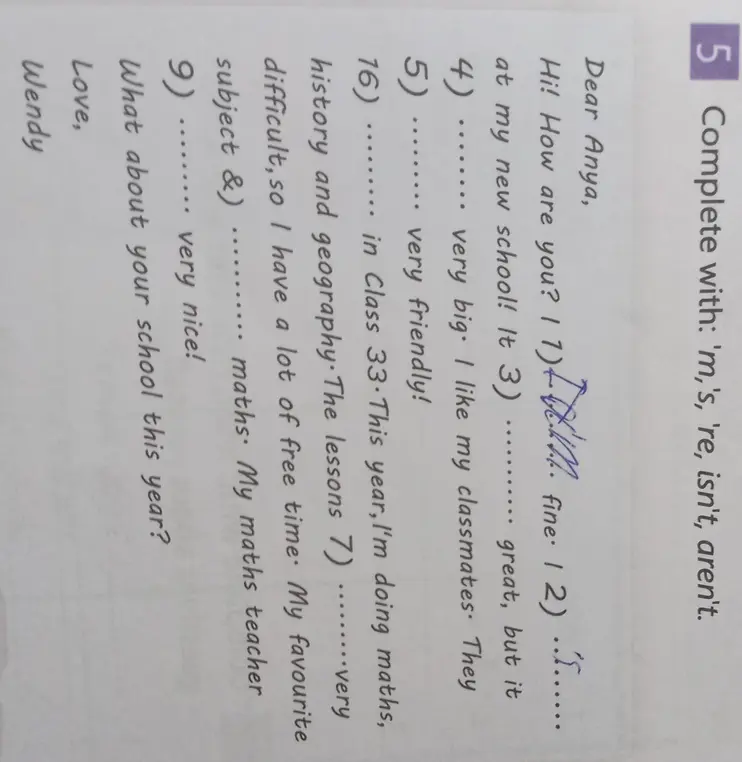 5 Complete with: 'm,'s, 're, isn't, aren't.
Dear Anya,
Hi! How are you? I 1) ......... fine. I 2) .'s.......
at my new school! It 3) ........... great, but it
4) ......... very big. I like my classmates. They
5) ......... very friendly!
16) ......... in Class 33. This year, I'm doing maths,
history and geography. The lessons 7) .........very
difficult, so I have a lot of free time. My favourite
subject &) ........... maths. My maths teacher
9) ......... very nice!
What about your school this year?
Love,
Wendy